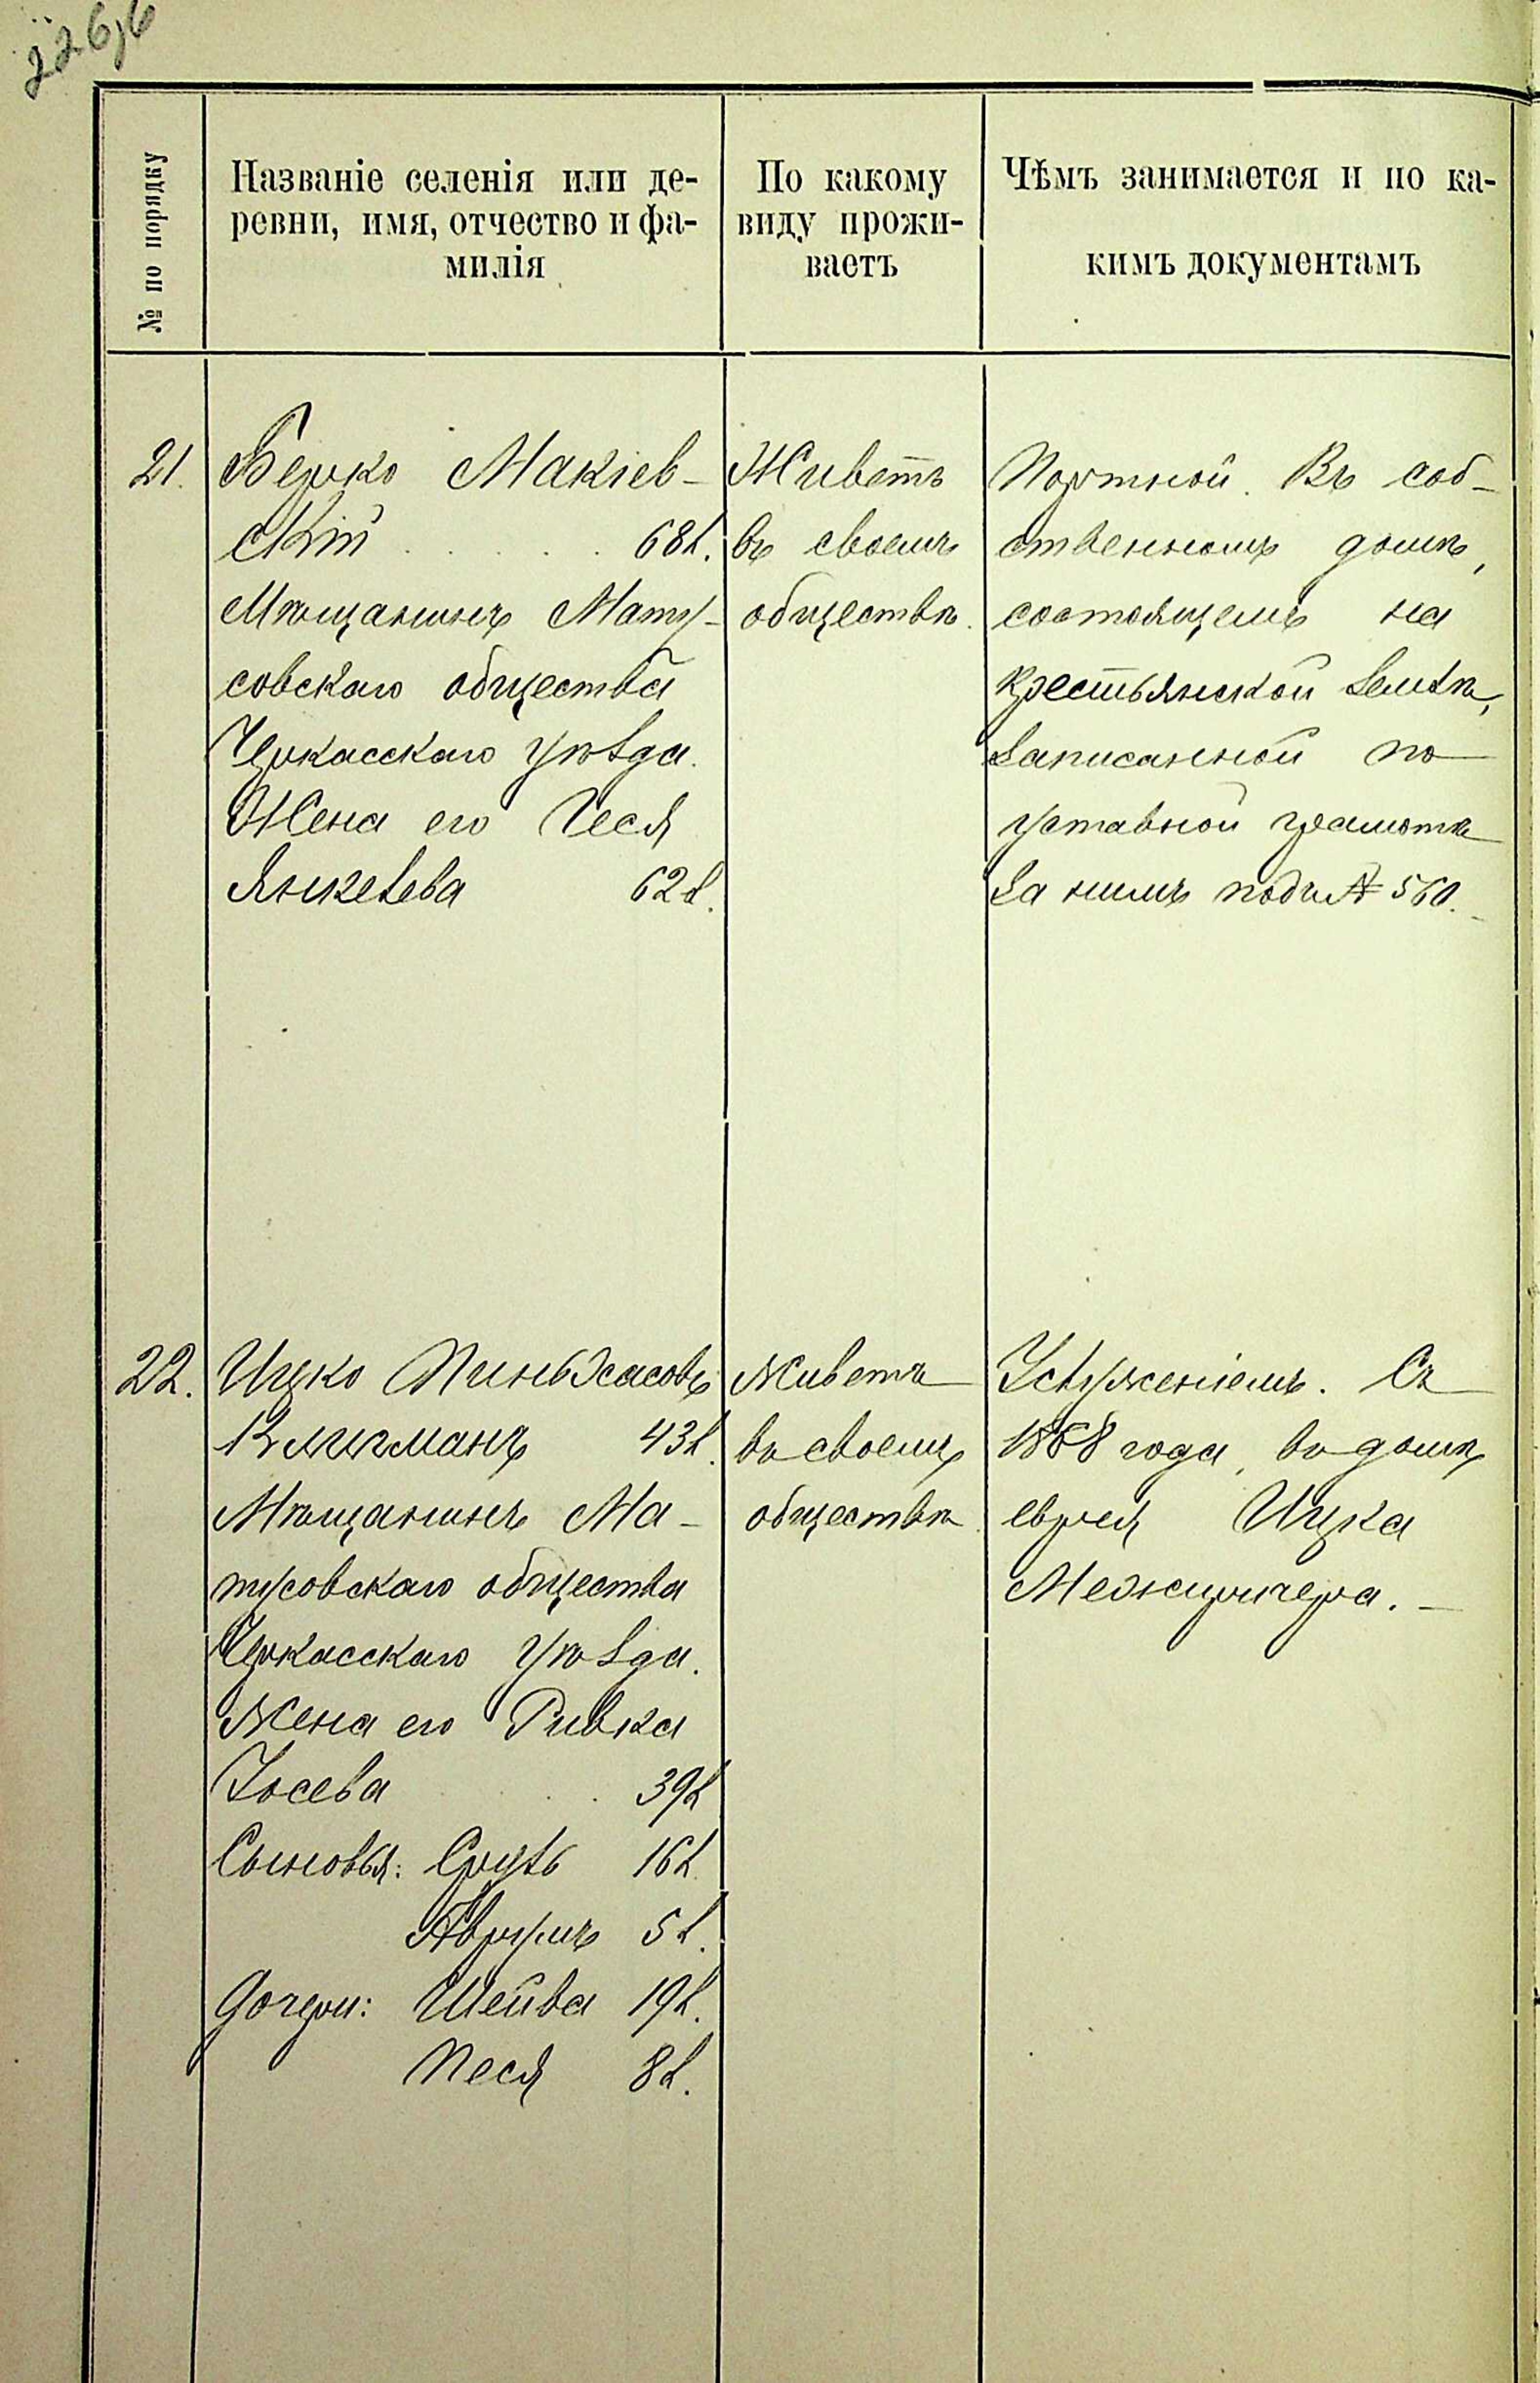 226,б
№ по порядку
Названіе селенія или де-
ревни, имя, отчество и фа-
милія
По какому
виду прожи-
ваетъ
Чѣмъ занимается и по ка-
кимъ документамъ
21.
Берко Макіев-
скій . . . . . 68л.
Мѣщанинъ Мату-
совскаго общества
Черкасскаго уѣзда.
Жена его Геся
Янкелева 62л.
Живетъ
въ своемъ
обществѣ.
Портной. Въ соб-
ственномъ домѣ,
состоящемъ на
крестьянской землѣ,
записанной по
уставной грамотѣ
за нимъ подъ № 560.
22.
Ицко Пиньхасовъ
Клигманъ 43л.
Мѣщанинъ Ма-
тусовскаго общества
Черкасскаго уѣзда.
Жена его Ривка
Іосева . . 39л
Сыновья: Сруль 16л.
Аврумъ 5л.
Дочери: Шейва 19л.
Песя 8л.
Живетъ
въ своемъ
обществѣ
Услуженіемъ. Съ
1868 года, въ домѣ
еврея Ицка
Межиричера. —